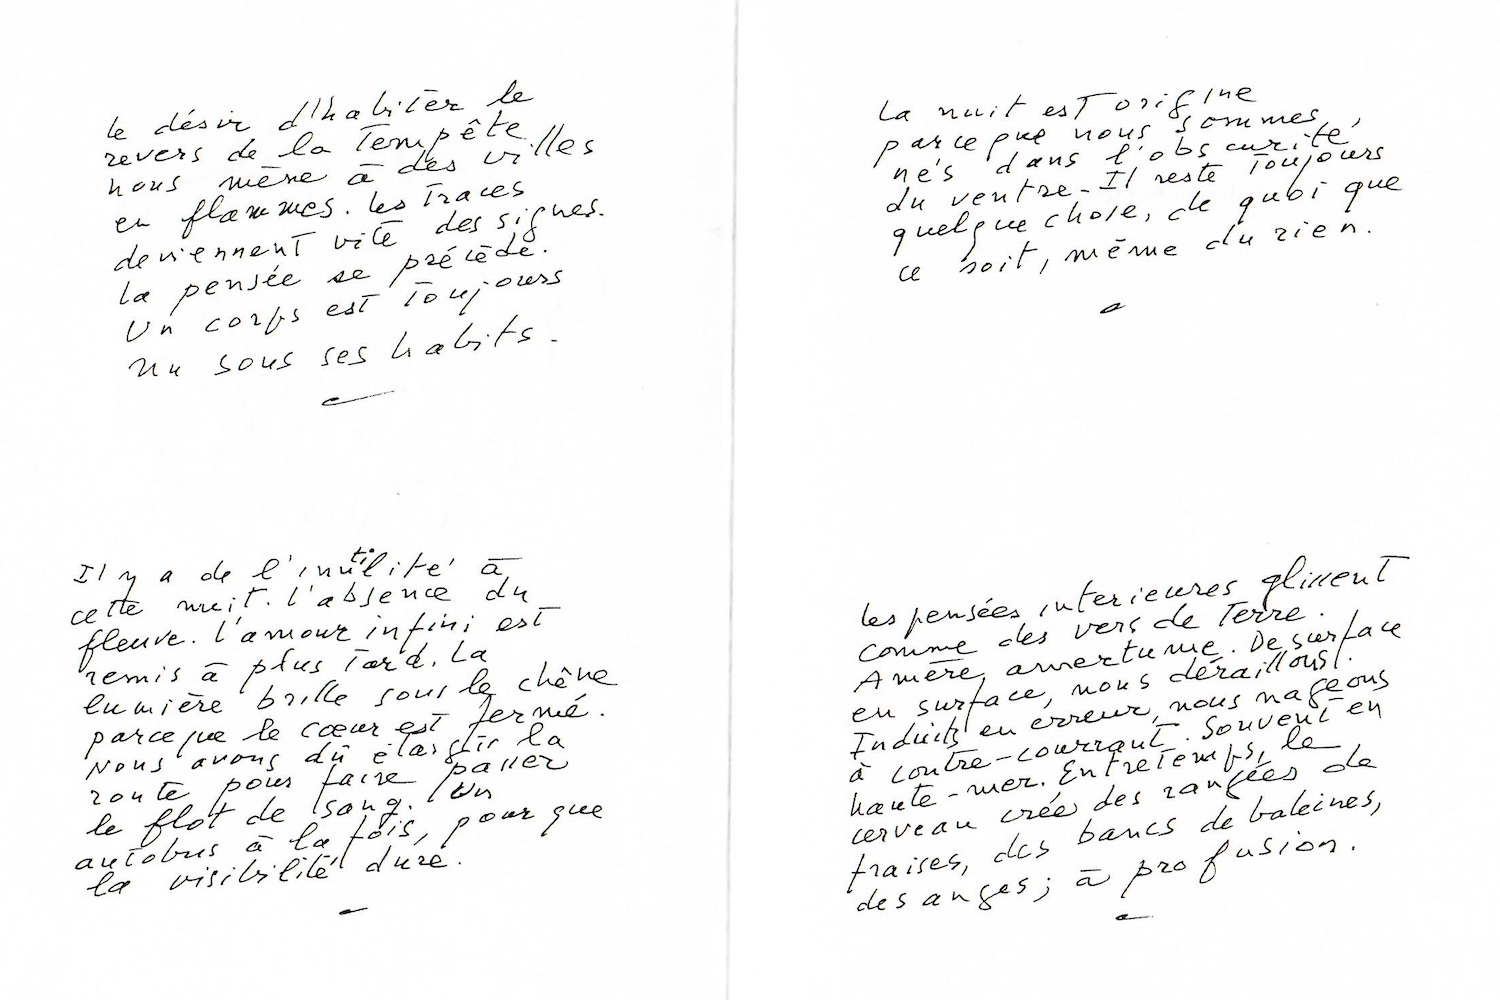 le désir d'habiter le
revers de la Tempête
nous mène à des villes
en flammes. les Traces
deviennent vite des signes.
la pensée se précède.
Un corps est Toujours
nu sous ses habits.
Il y a de l'inutilité à
cette nuit. l'absence du
fleuve. l'amour infini est
remis à plus Tard. La
lumière brille sous le chêne
parceque le cœur est fermé.
Nous avons dû élargir la
route pour faire passer
le flot de sang. Un
autobus à la fois, pour que
la visibilité dure.
La nuit est origine
parceque nous sommes,
nés dans l'obscurité
du ventre. Il reste Toujours
quelque chose, de quoi que
ce soit, même du rien.
les pensées interieures glissent
comme des vers de Terre.
Amère amertume. De surface
en surface, nous déraillons.
Induits en erreur, nous nageons
à contre-courrant. Souvent en
haute-mer. Entretemps, le
cerveau crée des rangées de
fraises, des bancs de baleines,
des anges; à profusion.